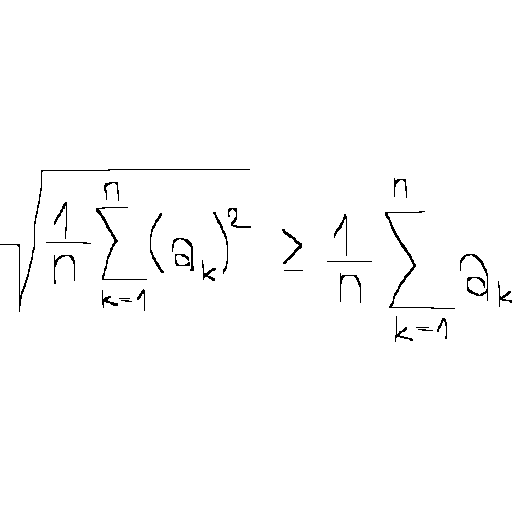 \sqrt{\frac{1}{n}\sum_{k=1}^{n}(a_k)^2} \geq \frac{1}{n}\sum_{k=1}^{n}a_k